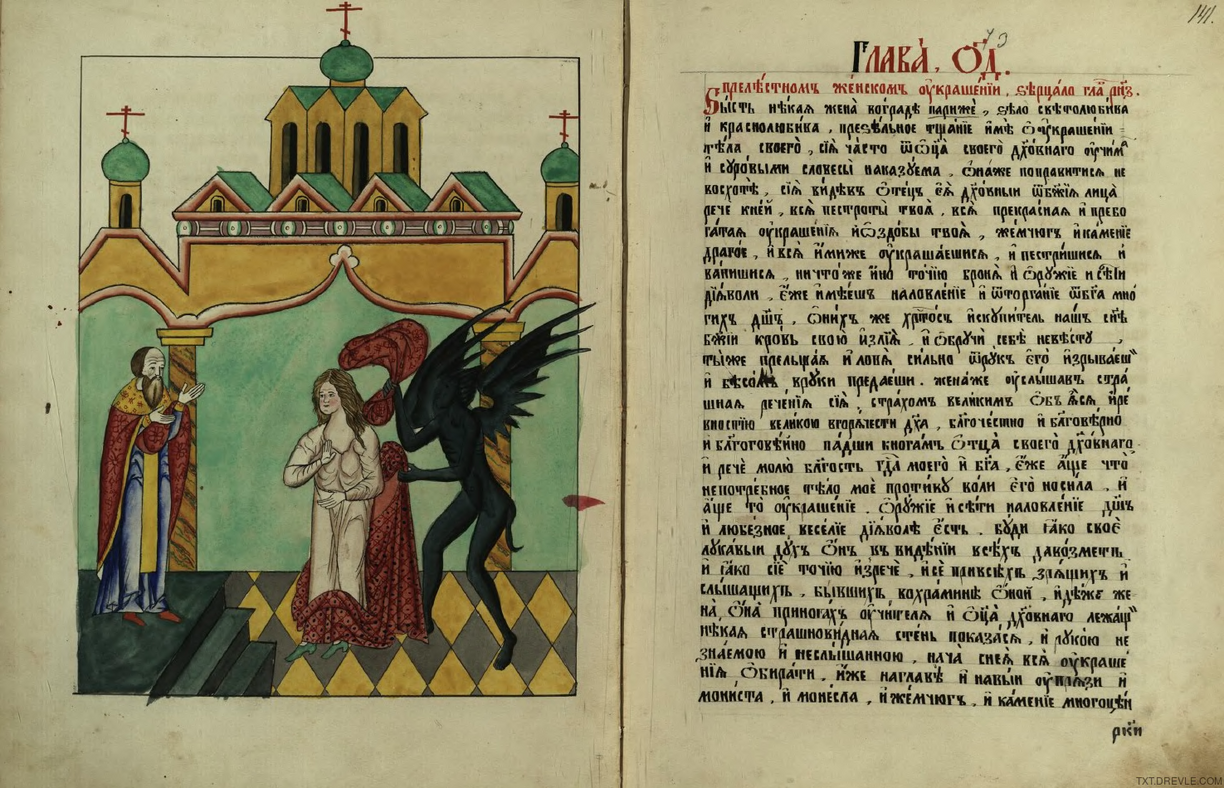 141.
Глава̀, ѻ҃д.
прелѣстномъ же́нскомъ ᲂукраше́нїи, ѕе́рцало гла҃ рн҃з.
Бы́сть нѣ́кая жена̀ воградѣ парижѐ, ѕѣло свѣтолюбива
и҆ краснолюбива, преѕѣ́льное тща́нїе и҆мѣ̀ ѡ҆ᲂукраше́нїи
тѣ́ла своегѡ̀, сїѧ̀ ча́сто ѿѻ҆ц҃а̀ своего дх҃о́внаго
и҆ суро́выми словесы̀ наказуема, ѻ҆на́же поправитисѧ не
восхотѣ̀, сїѧ̀ ви́дѣвъ ѻ҆те́цъ еѧ̀ дх҃о́вныи лица̀
речѐ кне́й, всѧ̀ пестроты̀ твоѧ̀, всѧ̀ прекра́снаѧ и҆ пребо
га́таѧ ᲂукраше́нїѧ и҆ѻ҆здо́бы твоѧ̀, же́мчюгъ и҆ка́менїе
драго́е, и҆всѧ̀ и҆́миже ᲂукраша́ешисѧ, и҆пестри́шисѧ и҆
вапишисѧ, ничто́же и҆́но то́чїю бронѧ̀ и҆ ѻ҆ру́жїе и҆ сѣ́ти
дїѧ́воли, е҆́же и҆мѣ́ешъ наловле́нїе и҆ ѿторга́нїе ѿбг҃а мно́
гихъ дш҃ъ, ѻ҆ни́хъ же хрⷭ҇то́съ и҆скупи́тель на́шъ сн҃ъ
бж҃їи кро́вь свою̀ и҆злїѧ̀, и҆ ѻ҆бручѝ себѣ̀ невѣ́сту,
ты́же прельща́ѧ и҆ловѧ̀ си́льно ѿру́къ е҆гѡ̀ и҆зрыва́еш
и҆ бѣсо́мъ вруки предае́ши. жена́же ᲂуслы́шавъ стра́
шнаѧ рече́нїѧ сїѧ̀, стра́хомъ вели́кимъ ѻ҆бъѧ́сѧ и҆ ре́
вностїю вели́кою дх҃а, бл҃гоче́стно и҆ бл҃говѣ́рно
и҆ бл҃гоговѣ́йно па́дши внога́мъ ѻ҆тца̀ своего̀ дх҃о́внаго
и҆ речѐ молю̀ бл҃гость гдⷭ҇а моего и҆ бг҃а, е҆́же а҆́ще что̀
непотре́бное тѣ́ло моѐ проти́ву во́ли е҆гѡ̀ носи́ла, и҆
а҆́ще то̀ ᲂукраше́нїе. ѻ҆ру́жїе и҆сѣ́ти наловле́нїе дш҃ъ
и҆ любе́зное весе́лїе дїѧ́волѣ е҆́сть. бу́ди ꙗ҆́ко своѐ
лука́выи ду́хъ ѻ҆́нъ въ ви́дѣнїи всѣ́хъ давозме́тъ
и҆ ꙗ҆́ко сїѐ то́чїю и҆зречѐ, и҆сѐ привсѣ́хъ зрѧ́щихъ и҆
слы́шащихъ, бы́вшихъ вохра́минѣ ѻ҆́ной, и҆дѣ́же же
на̀ ѻ҆на̀ принога́хъ ᲂучи́телѧ и҆ ѻ҆ц҃а̀ дх҃о́внаго лежа́щ
нѣ́каѧ страшнови́днаѧ стѣ́нь показа́сѧ, и҆ руко́ю не
зна́емою и҆ неслы́шанною, нача̀ снеѧ̀ всѧ̀ ᲂукраше́
нїѧ ѻ҆бира́ти, и҆́же наглавѣ̀ и҆ навыи и҆
мони́ста, и҆ мони́сла, и҆же́мчюгъ, и҆ ка́менїе многоцѣ́н
TXT.DREVLE.COM